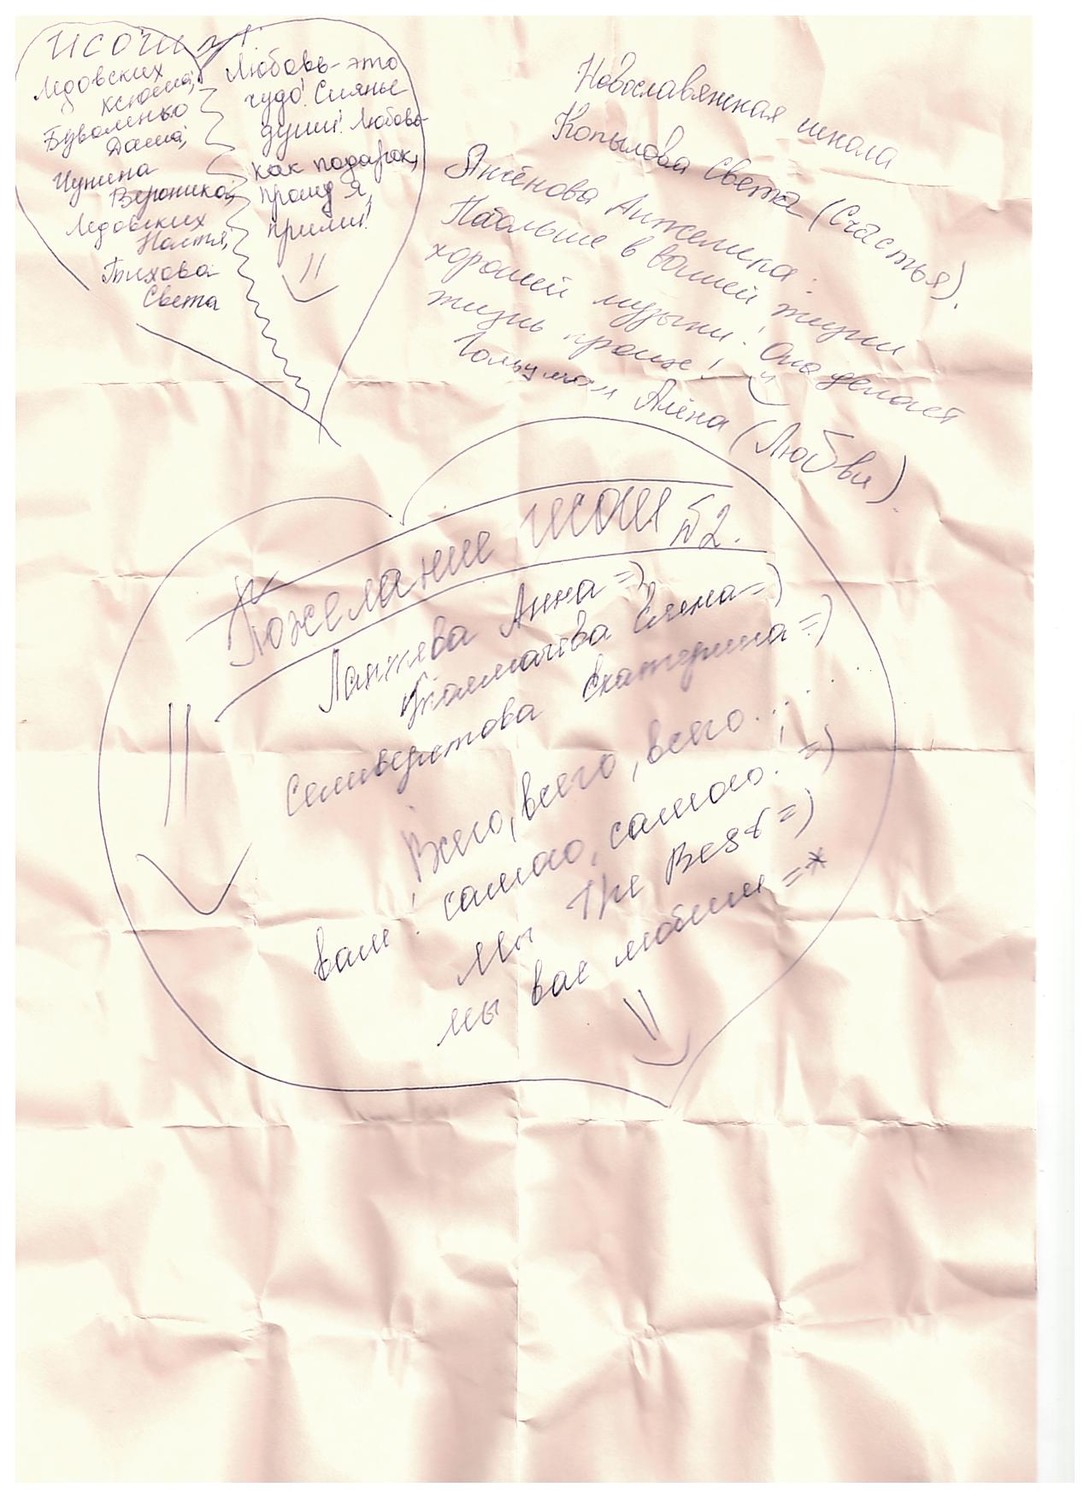 ИСОШ №1
Ледовских
Ксюша,
Буваленко
Даша,
Чунина
Вероника,
Ледовских
Настя,
Тихова
Света
Любовь-это
чудо! Сиянье
души! Любовь-
как подарок,
прошу я,
прими!
Новославянская школа
Копылова Света (Счастья).
Анжелика:
Побольше в вашей жизни
хорошей музыки! Она делает
жизнь проще!
Алёна (Любви).
Пожелание ИСОШ №2.
Лапшева Анна =)
Толмачёва Елена =)
Селивёрстова Екатерина =)
Всего, всего, всего...
самого, самого. =)
вам!
Мы The Best =)
мы вас любим =*